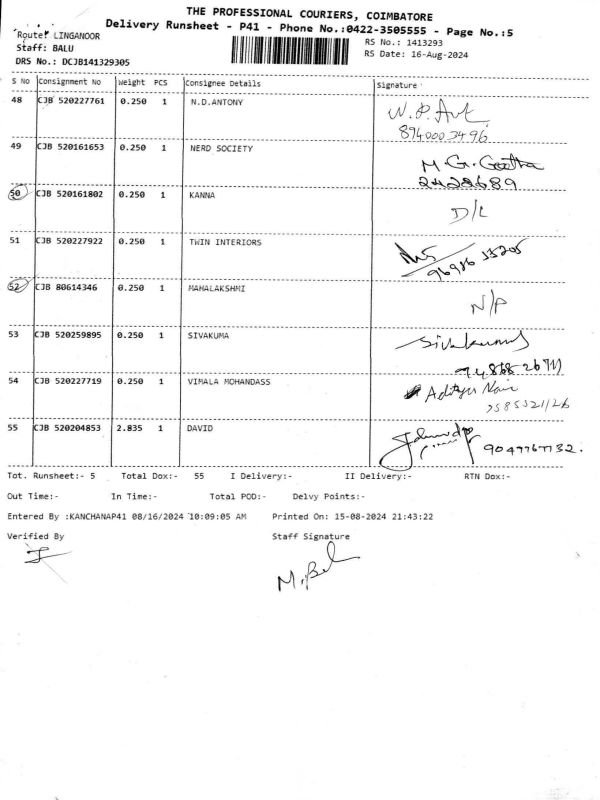 THE PROFESSIONAL COURIERS, COIMBATORE
Delivery Runsheet - P41 - Phone No.:0422-3505555 - Page No.:5
Route: LINGANOOR
RS No.: 1413293
Staff: BALU
RS Date: 16-Aug-2024
DRS No.: DCJB141329305
S No Consignment No Weight PCS Consignee Details Signature
48 CJB 520227761 0.250 1 N.D.ANTONY
8940003496
49 CJB 520161653 0.250 1 NERD SOCIETY M. G. Geetha
2428689
50 CJB 520161802 0.250 1 KANNA D/L
51 CJB 520227922 0.250 1 TWIN INTERIORS
52 CJB 80614346 0.250 1 MAHALAKSHMI N/P
53 CJB 520259895 0.250 1 SIVAKUMA Sivakumar
54 CJB 520227719 0.250 1 VIMALA MOHANDASS Aditya Nair
55 CJB 520204853 2.835 1 DAVID
Tot. Runsheet:- 5 Total Dox:- 55 I Delivery:- II Delivery:- RTN Dox:-
Out Time:- In Time:- Total POD:- Delvy Points:-
Entered By :KANCHANAP41 08/16/2024 10:09:05 AM Printed On: 15-08-2024 21:43:22
Verified By Staff Signature